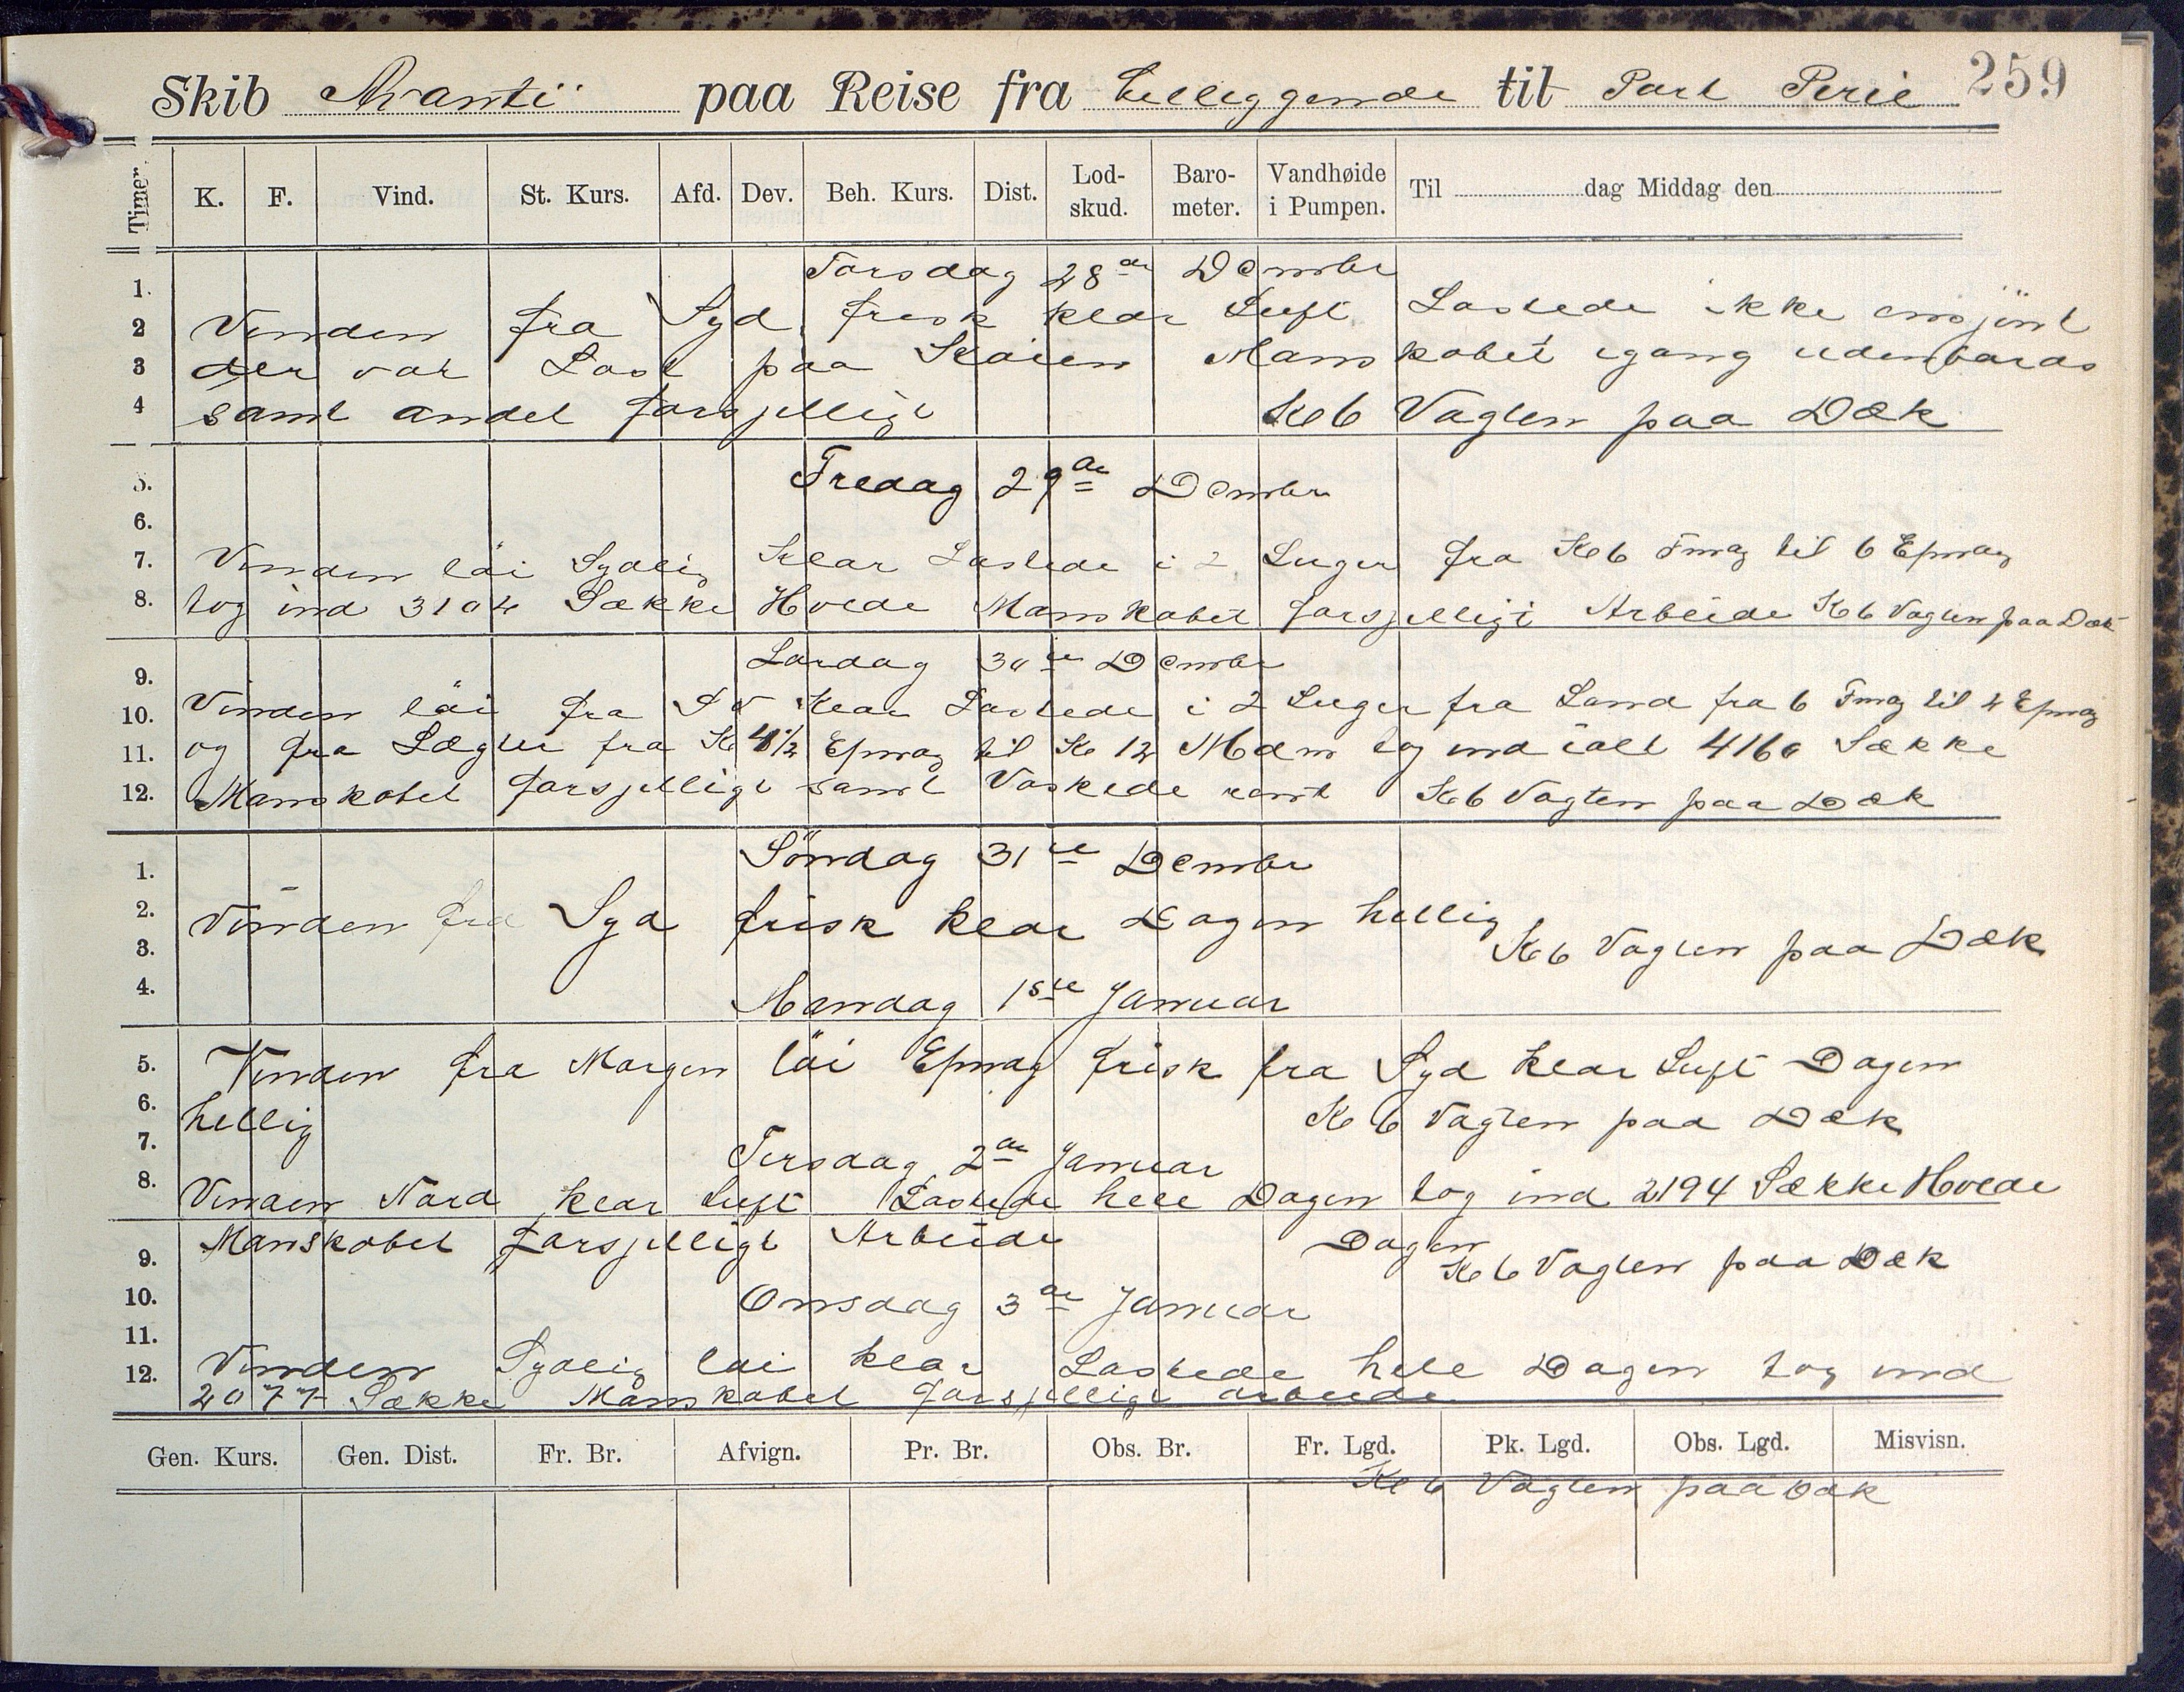 259
Skib Avanti paa Reise fra Stilliggende til Port Pirie
Timer. K. F. Vind. St. Kurs. Afd. Dev. Beh. Kurs. Dist. Lod-skud. Baro-meter. Vandhøide i Pumpen. Til dag Middag den
1. Torsdag 28de Dembr
2 Vinden fra Syd frisk klar Luft Lastede ikke
3 der var Last paa Kaien Manskabet igang udenbords
4 samt andet forsjelligt Kl 6 Vagten paa Dæk
5. Fredag 29de Dembr
6.
7. Vinden löi Sydlig Klar Lastede i 2 Luger fra Kl 6 Fmag til 6 Epmag
8. tog ind 3104 Sække Hvede Manskabet forsjelligt Arbeide Kl 6 Vagten paa Dæk
9. Lördag 30te Dembr
10. Vinden löi fra SV Klar Lastede i 2 Luger fra Land fra 6 Fmag til 4 Epmag
11. og fra Lægter fra Kl 4 1/2 Epmag til Kl 12 tog ind ialt 4160 Sække
12. Manskabet forsjelligt samt Vaskede rent Kl 6 Vagten paa Dæk
1. Söndag 31te Dembr
2. Vinden fra Syd frisk klar Dagen hellig
3. Kl 6 Vagten paa Dæk
4. Mandag 1ste Januar
5. Vinden fra Morgen löi Epmag frisk fra Syd klar Luft Dagen
6. hellig Kl 6 Vagten paa Dæk
7. Tirsdag 2de Januar
8. Vinden Nord klar Luft Lastede hele Dagen tog ind 2194 Sække Hvede
Manskabet forsjelligt Arbeide Dagen
9. Kl 6 Vagten paa Dæk
10. Onsdag 3de Januar
11.
12. Vinden Sydlig löi klar Lastede hele Dagen tog ind
2077 Sække Manskabet forsjelligt arbeide
Gen. Kurs. Gen. Dist. Fr. Br. Afvign. Pr. Br. Obs. Br. Fr. Lgd. Pk. Lgd. Obs. Lgd. Misvisn.
Kl 6 Vagten paa Dæk